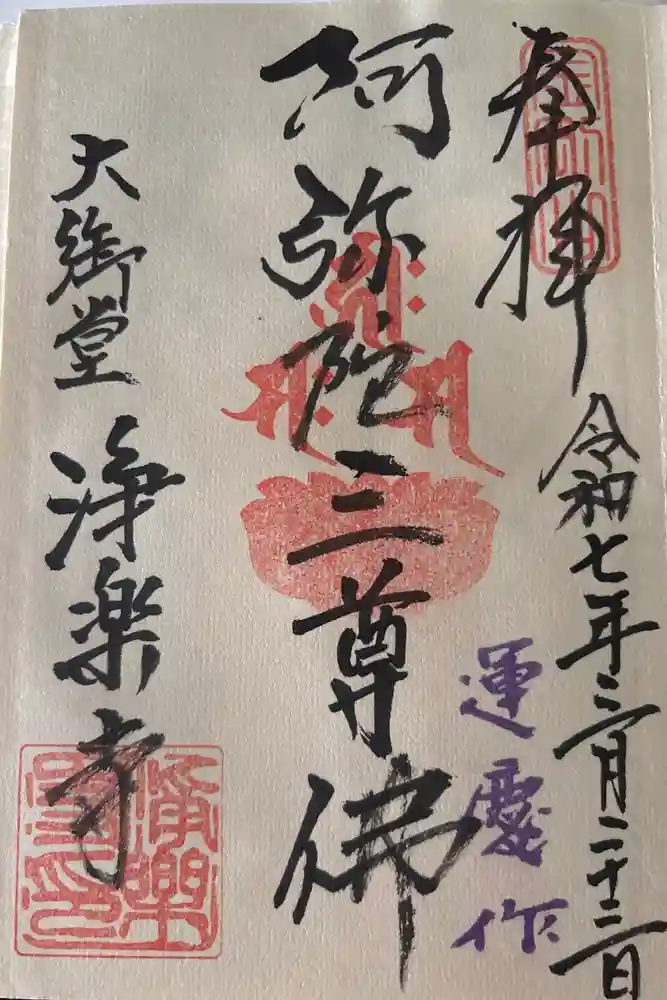 奉拝
令和七年三月二十三日
運慶作
阿弥陀三尊佛
大御堂
浄楽寺